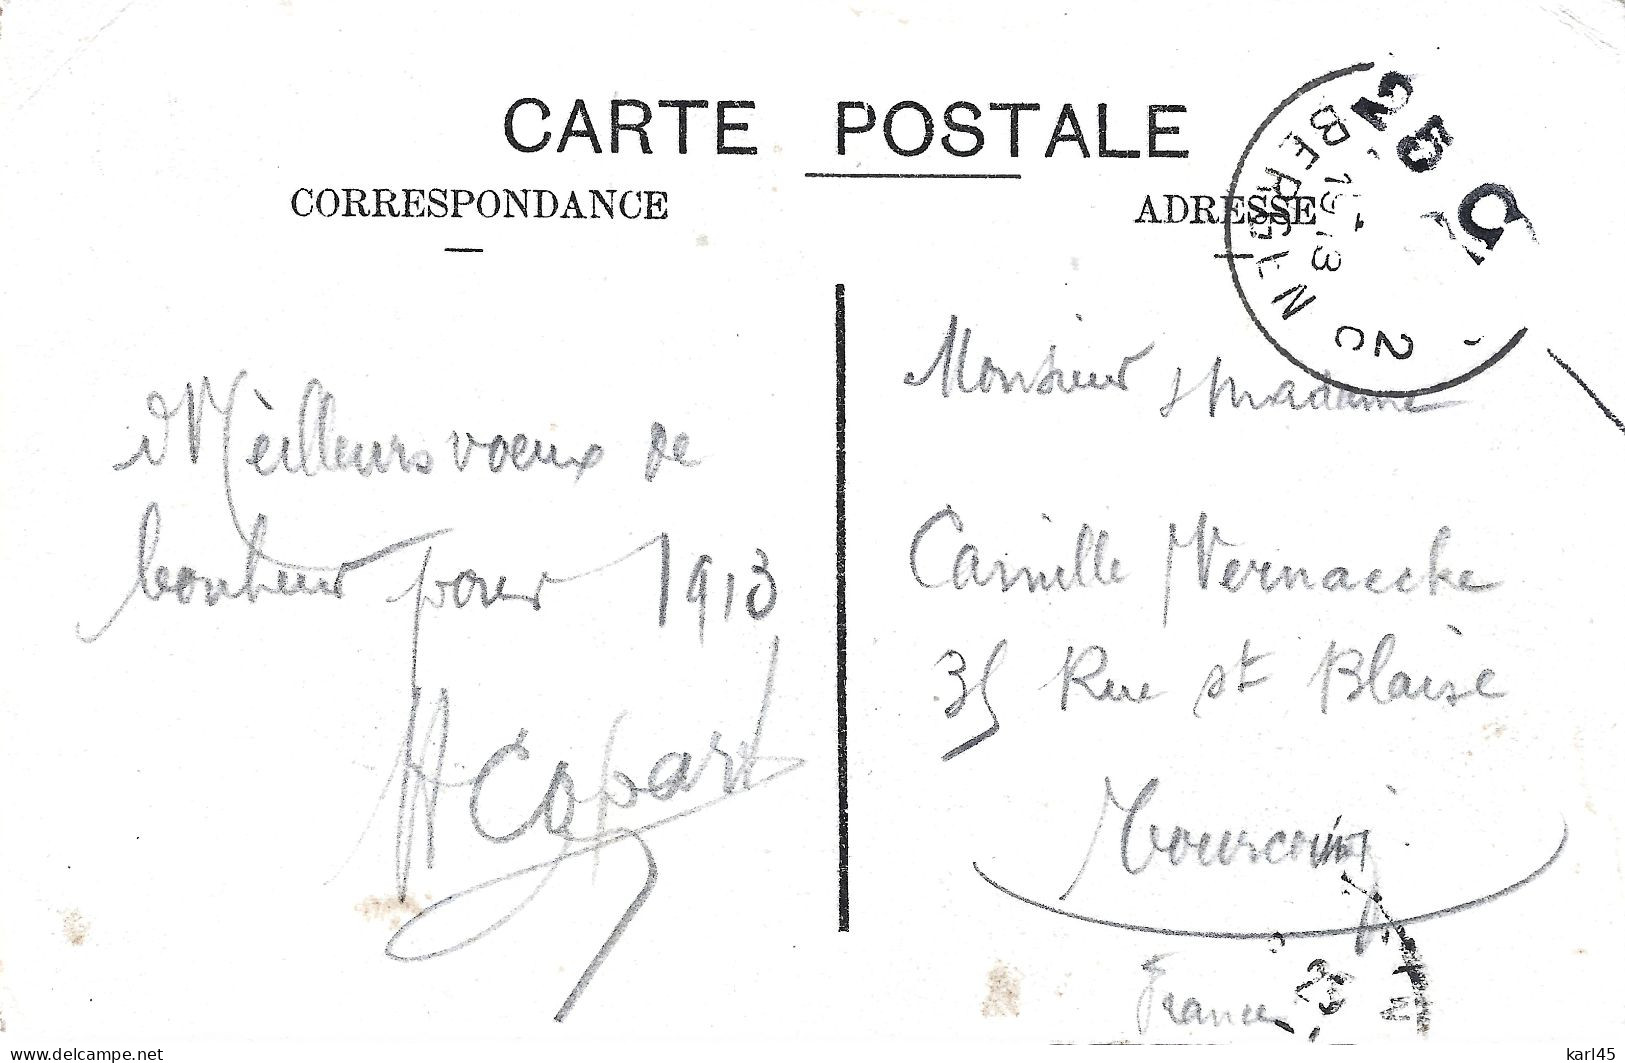 CARTE POSTALE
CORRESPONDANCE
ADRESSE
25 C
BERSEN
1913
20
Meilleurs voeux de
bonheur pour 1913
H Copart
Monsieur & Madame
Camille Vernaecke
35 Rue St Blaise
Tourcoing
France
25
www.delcampe.net
karl45